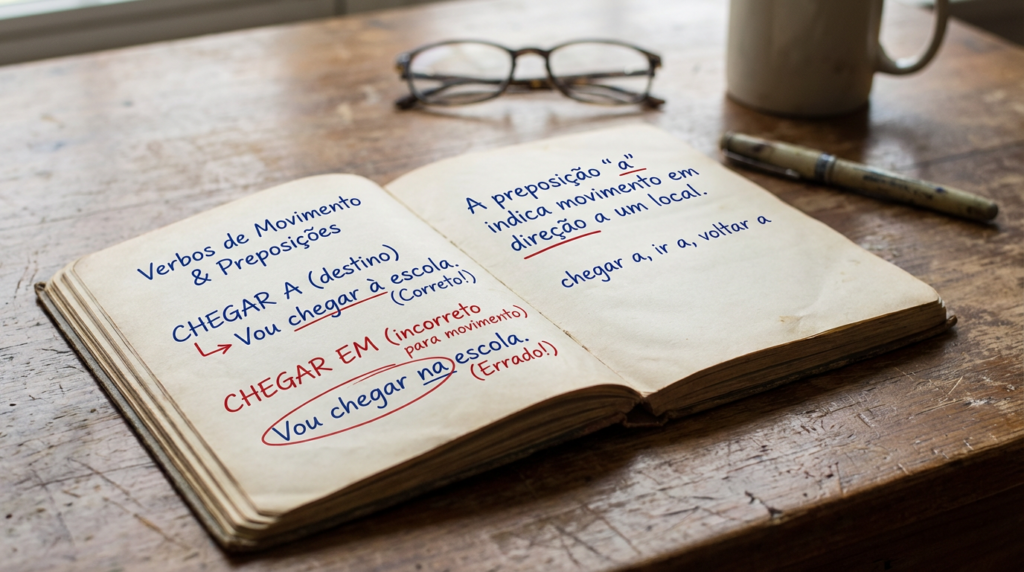 Verbos de Movimento
& Preposições
CHEGAR A (destino)
↳ Vou chegar à escola.
(Correto!)
CHEGAR EM (incorreto
para movimento)
Vou chegar na escola.
(Errado!)
A preposição "a"
indica movimento em
direção a um local.
chegar a, ir a, voltar a